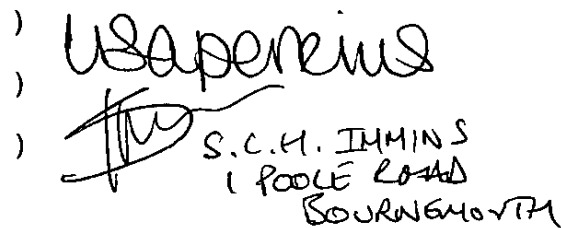 )
Lisa Perkins
)
) S.C.H. IMMINS
1 POOLE ROAD
BOURNEMOUTH